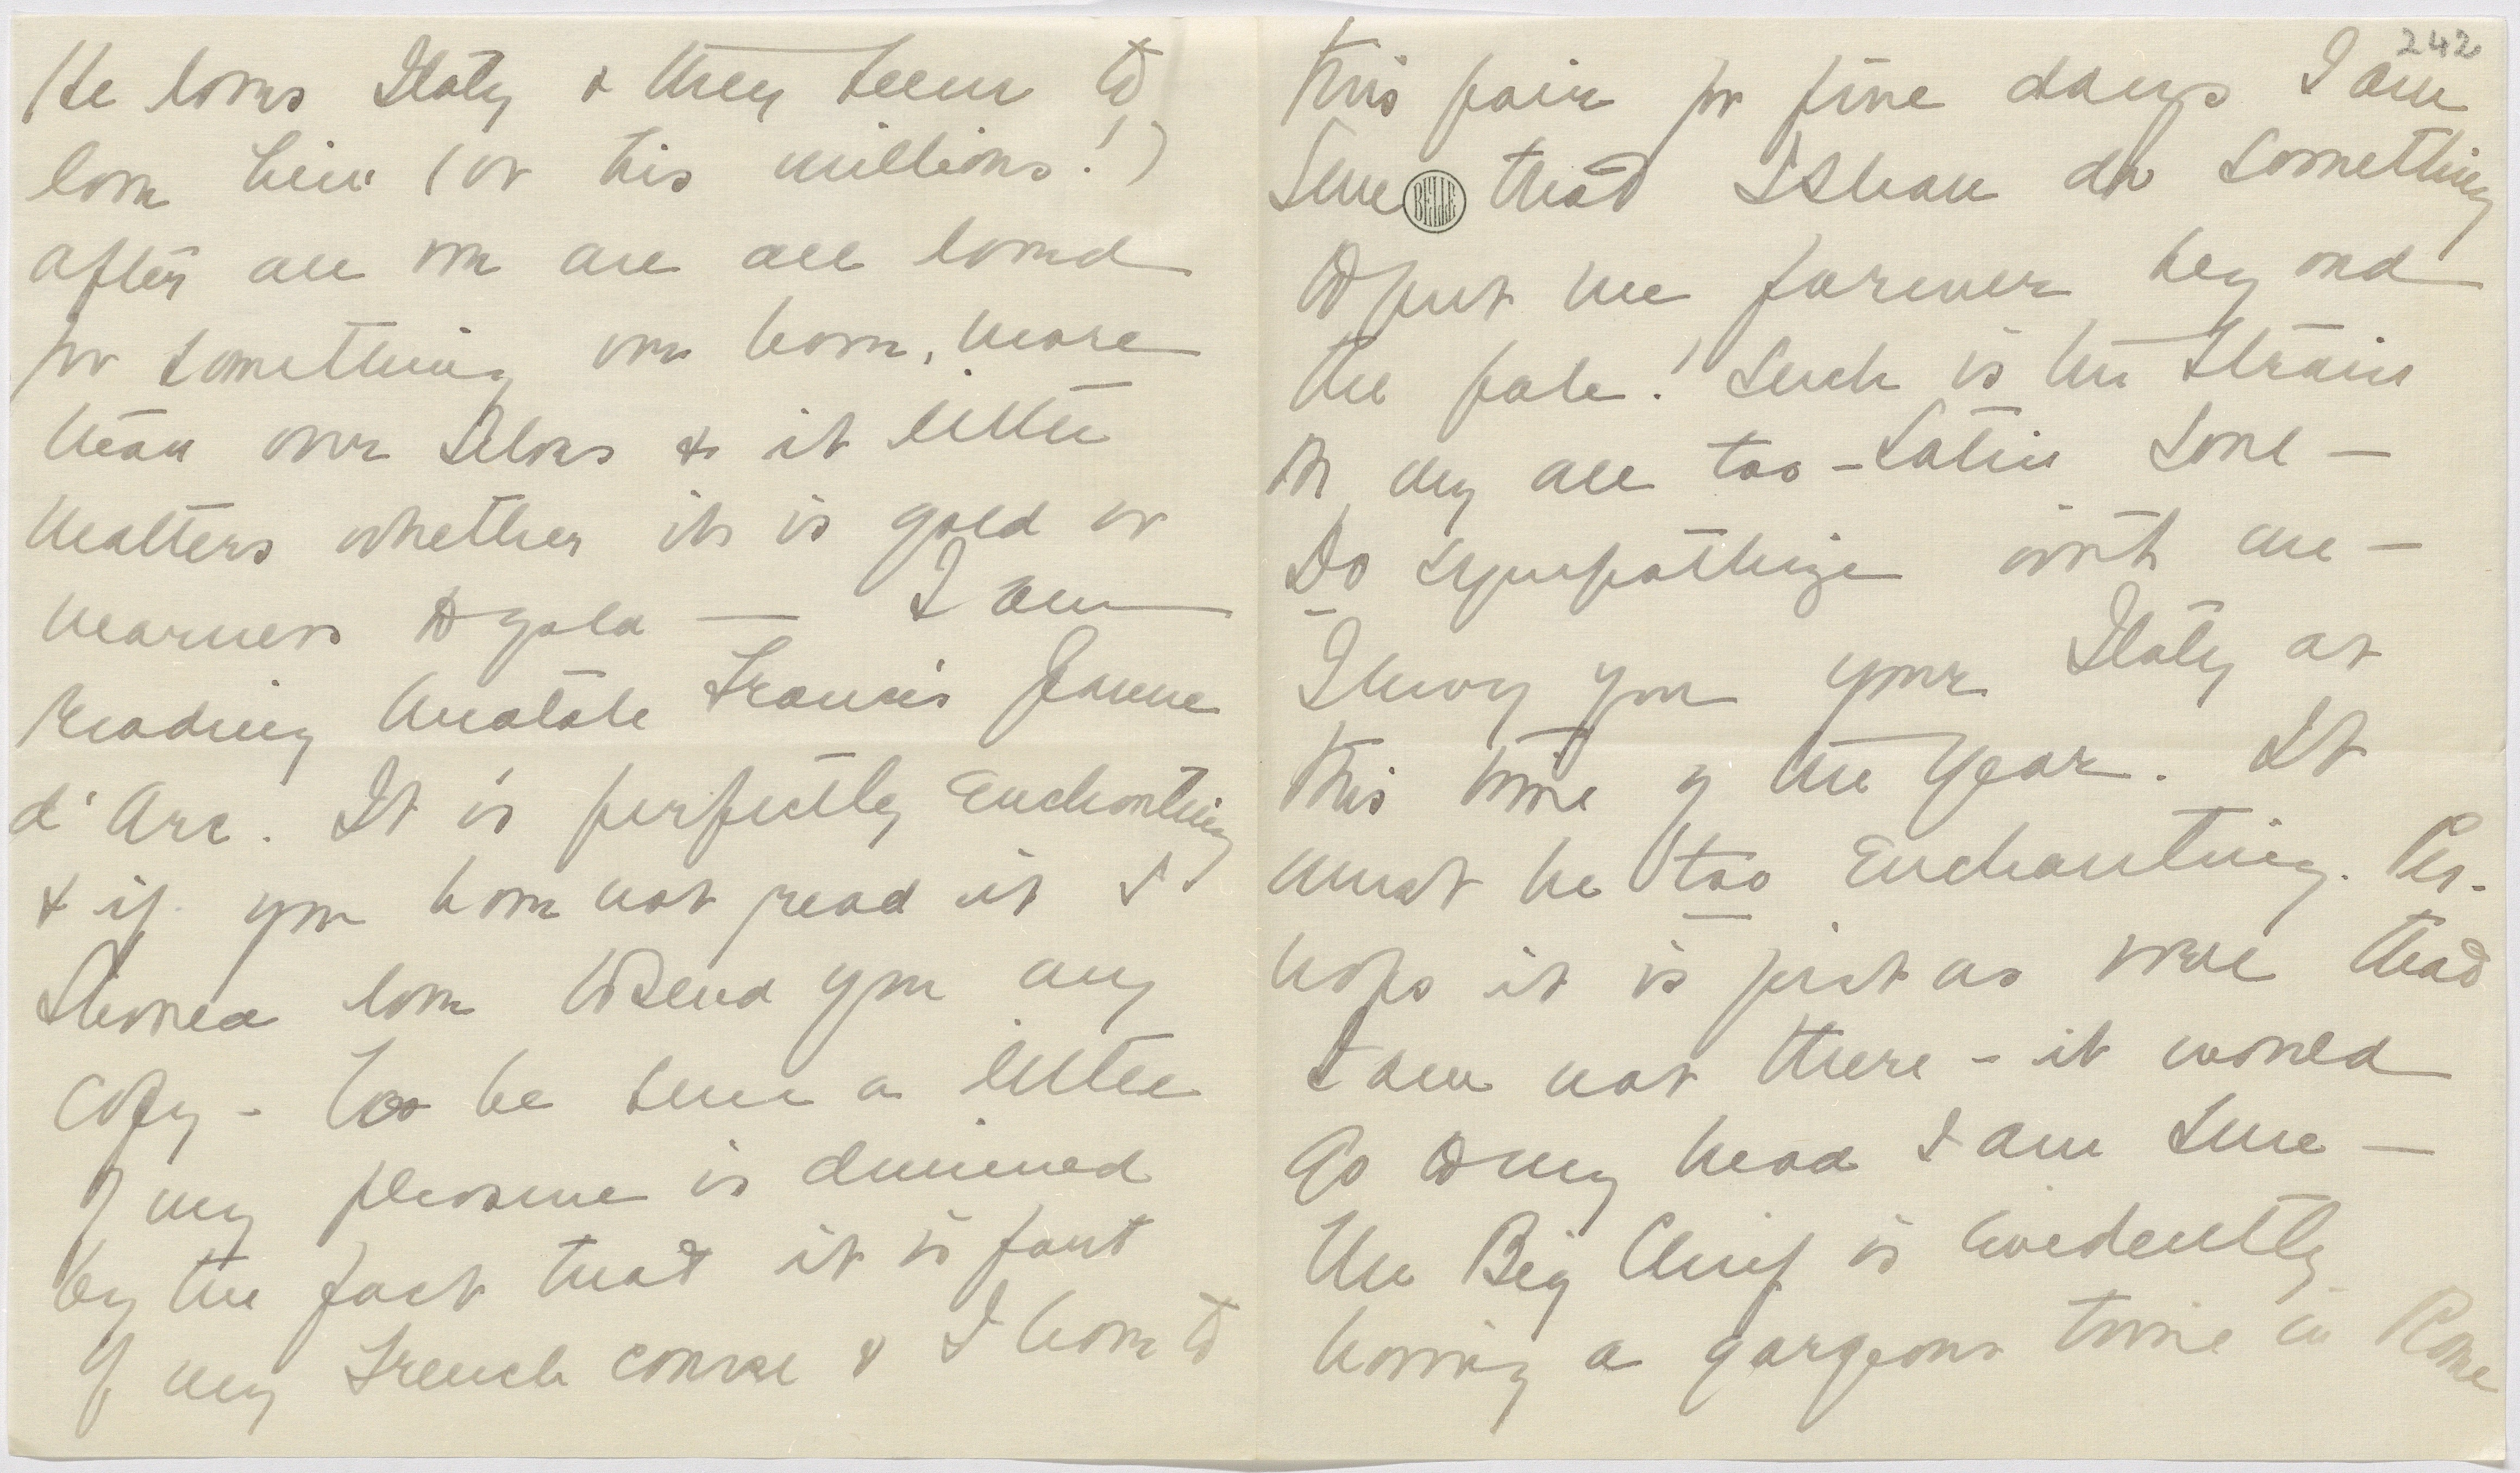 He loves Italy & they seem to
love him (or his millions!)
after all we are all loved
for something we have, more
than our selves & it little
matters whether it is gold or
nearness to gold — I am
reading Anatole France's Jeanne
d'Arc. It is perfectly enchanting
& if you have not read it I
should love to send you my
copy - To be sure a little
of my pleasure is dimmed
by the fact that it is part
of my French course & I have to
242
this pair for five days I am
sure that I shall do something
BELLE
to put me forever beyond
the pale! Such is the strain
on my all too-Latin soul —
Do sympathize with me —
I envy you your Italy at
this time of the year. It
must be too enchanting. Per-
haps it is just as well that
I am not there - it would
go to my head I am sure —
The Big Chief is evidently
having a gorgeous time in Rome